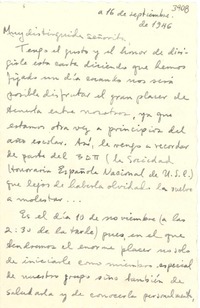 3908
a 16 de septiembre
de 1946
Muy distinguida señorita
Tengo el gusto y el honor de diri-
girle esta carta diciendo que hemos
fijado un día cuando nos será
posible disfrutar el gran placer de
tenerla entre nosotros, ya que
estamos otra vez a principios del
año escolar. Así, le vengo a recordar
de parte del (la Sociedad
Honoraria Española Nacional de U.S.C.)
que lejos de haberla olvidado la vuelvo
a molestar...
Es el día 10 de noviembre (a las
2:30 de la tarde) pues, en el que
tendremos el enorme placer no solo
de iniciarla como miembro especial
de nuestro grupo sino también de
saludarla y de conocerla personalmente,